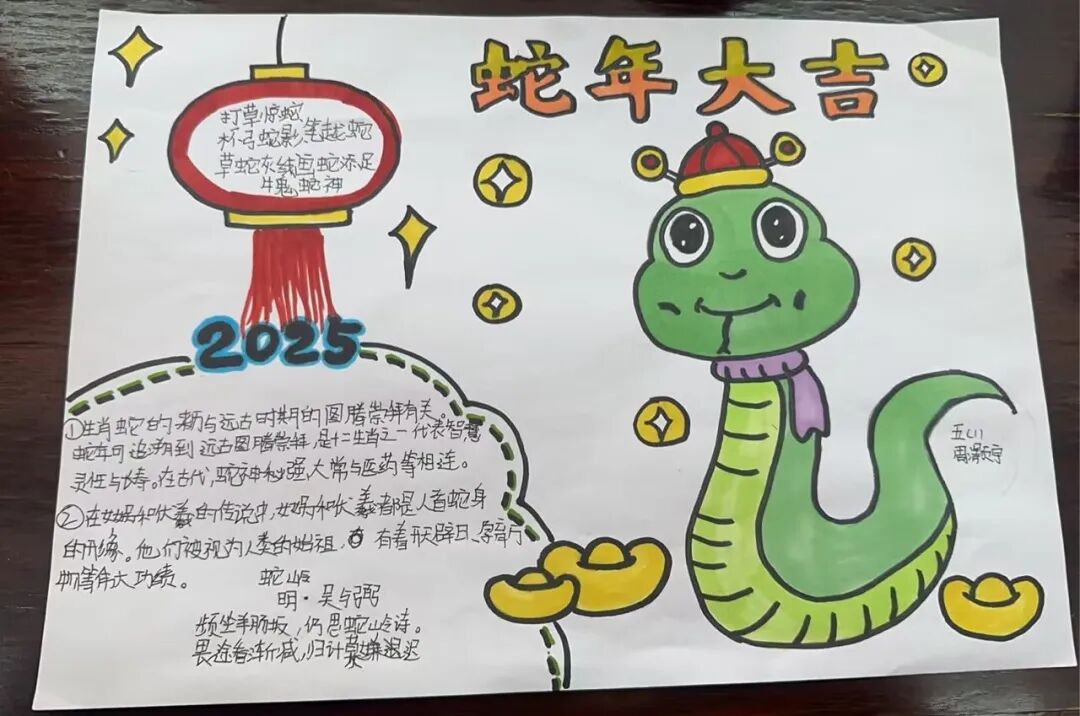 蛇年大吉
打草惊蛇
杯弓蛇影 笔走龙蛇
草蛇灰线画蛇添足
牛鬼蛇神
2025
①生肖蛇的来历与远古时期的图腾崇拜有关。
蛇年可追溯到远古图腾崇拜,是十二生肖之一代表智慧
灵性与长寿。在古代,蛇神秘强大常与医药等相连。
②在女娲和伏羲的传说中,女娲和伏羲者都是人首蛇身
的形缘。他们被视为人类的始祖,有着开天辟日、
等伟大功绩。
蛇山岭
明·吴与弼
频生羊肠坂,仍思蛇山岭诗。
畏途看渐减,归计莫嫌迟迟
五(1)
周